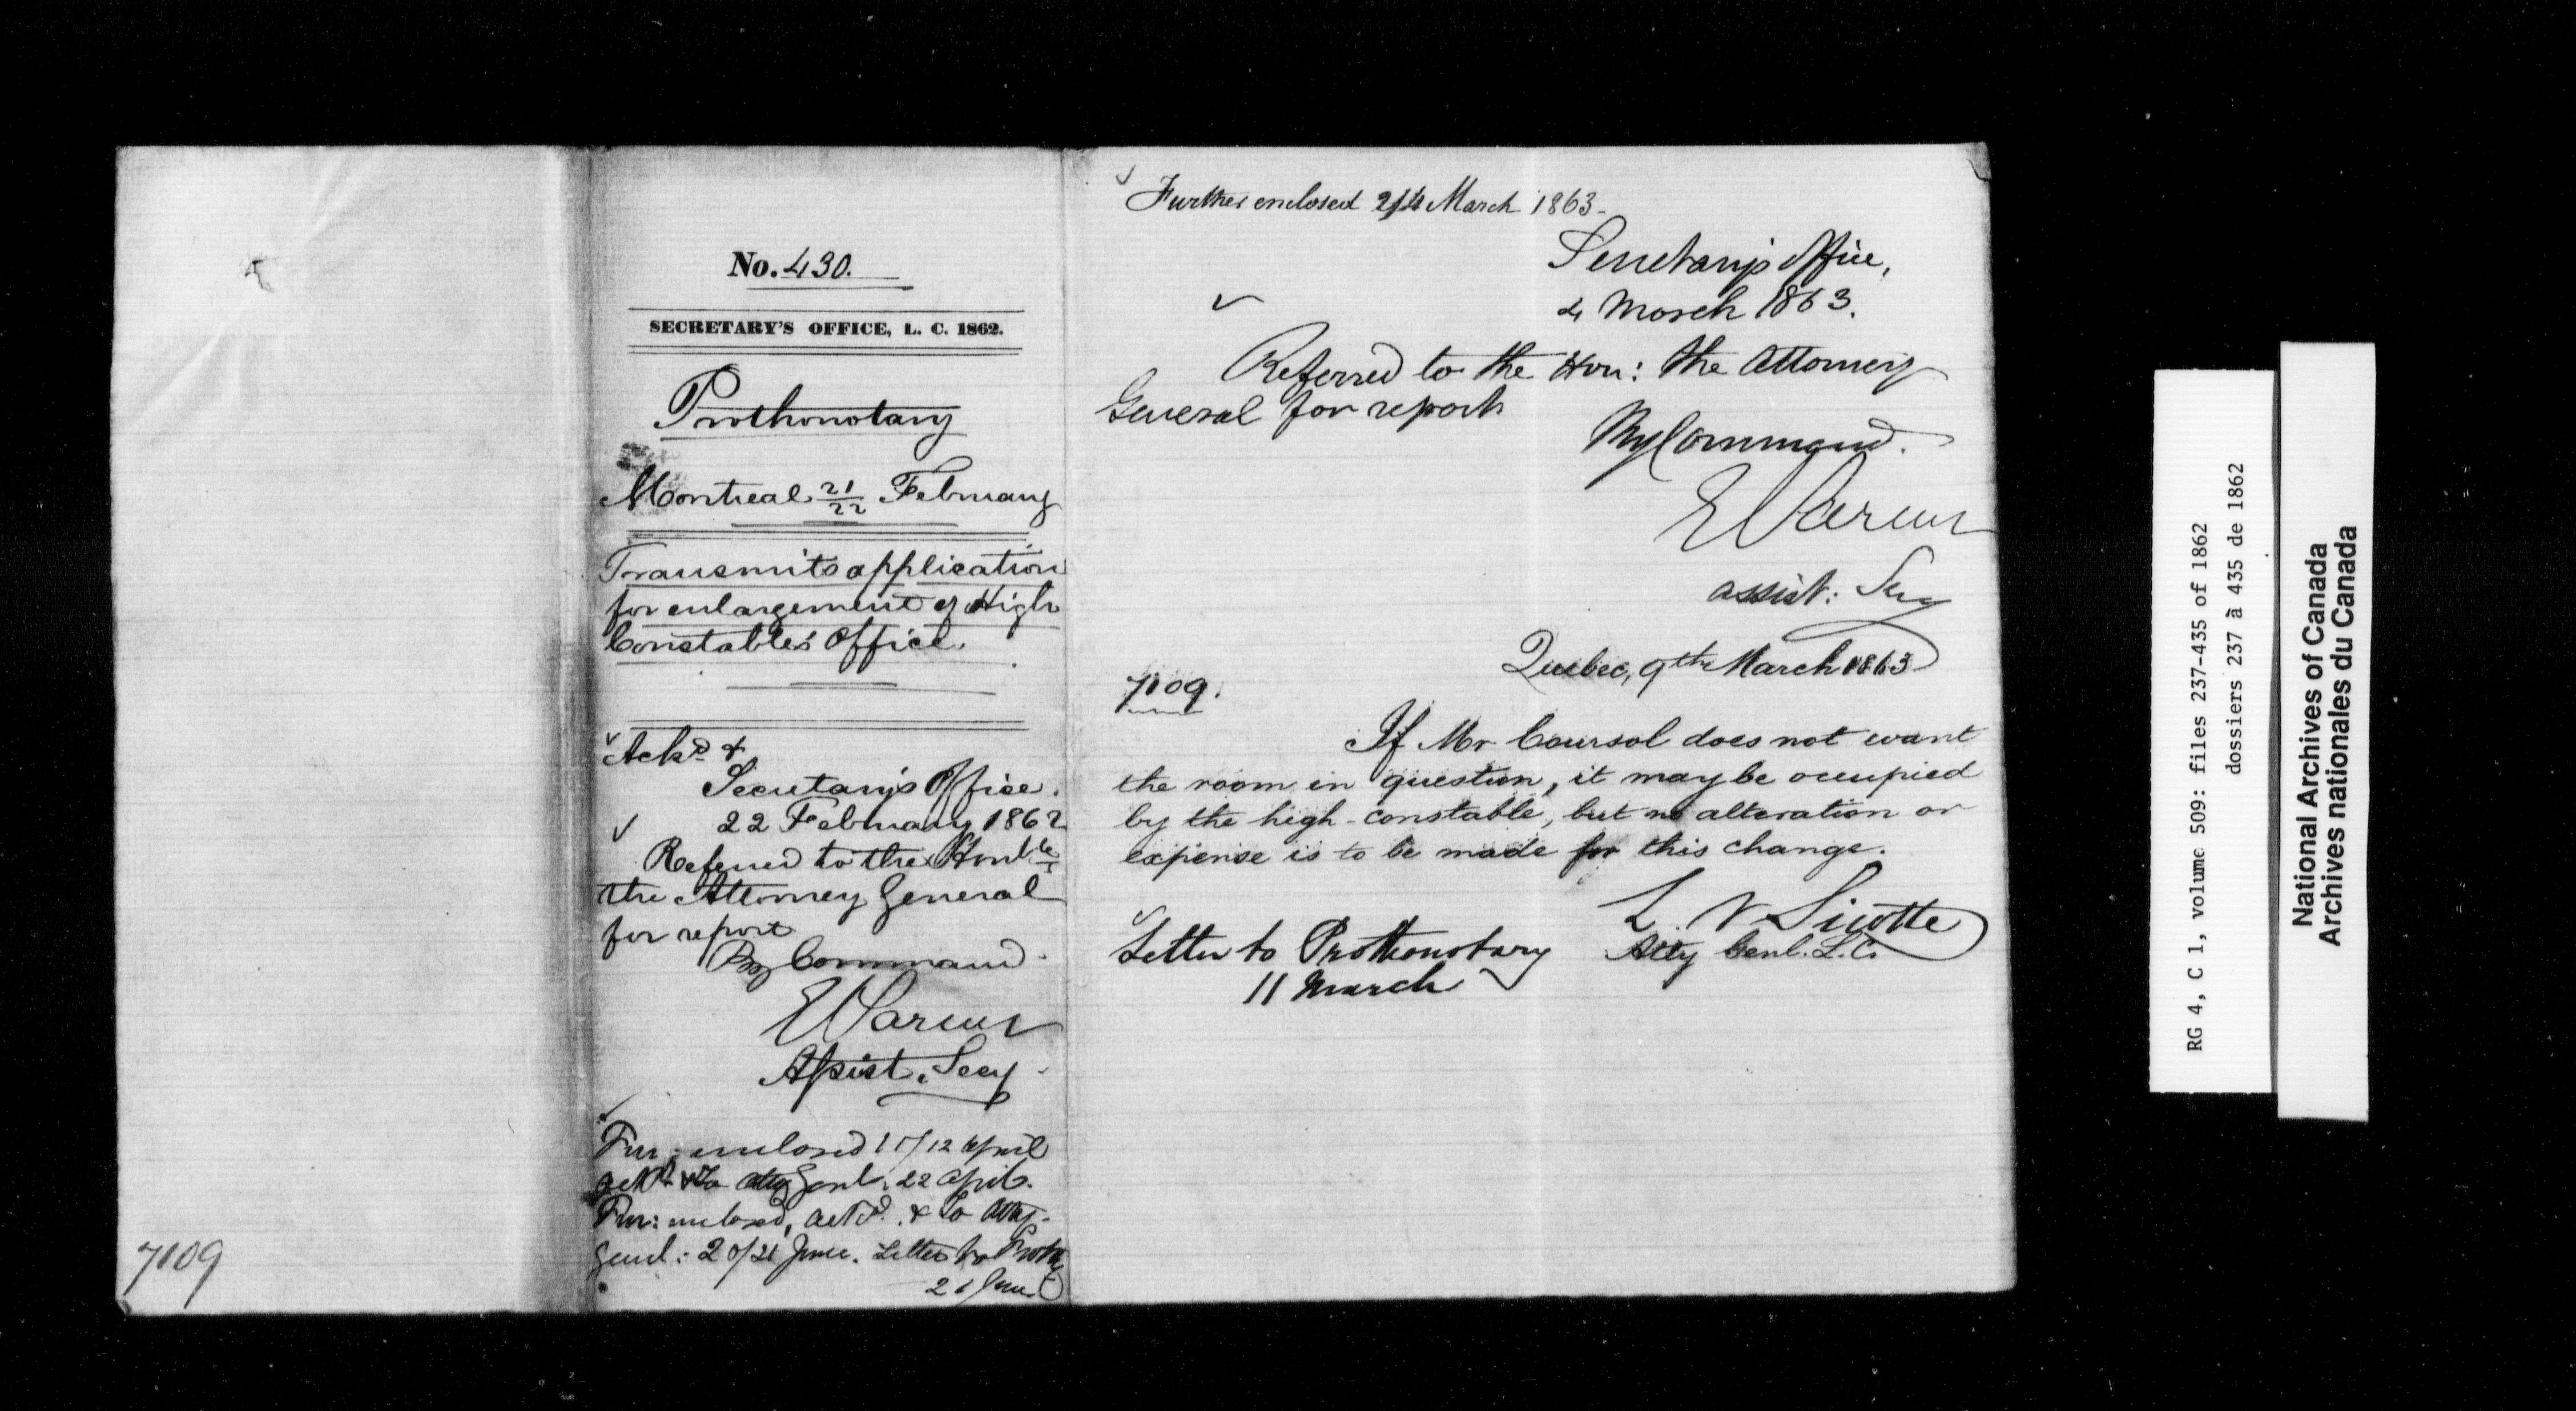 No. 430.
SECRETARY'S OFFICE, L. C. 1862.
Prothonotary
Montreal 21/22 February
Transmits application
for enlargement of High
Constable's Office.
Ackd &
Secretary's Office.
22 February 1862
Referred to the Honble
the Attorney General
for report
By Command.
Assist. Secy
Fur: enclosed 11/12 April
ackd. & to Atty Genl. 22 April.
Fur: enclosed, ackd. & to Atty.
Genl: 20/21 June. Letter to Prothy
21 June
7109
Further enclosed 2/4 March 1863.
Secretary's Office,
4 March 1863.
Referred to the Hon: the Attorney
General for report
By Command.
Assist: Secy
Quebec, 9th March 1863
7109.
If Mr Coursol does not want
the room in question, it may be occupied
by the high-constable, but no alteration or
expense is to be made for this change.
L. V Sicotte
Atty Genl. L.C.
Letter to Prothonotary
11 March
RG 4, C 1, volume 509: files 237-435 of 1862
dossiers 237 à 435 de 1862
National Archives of Canada
Archives nationales du Canada